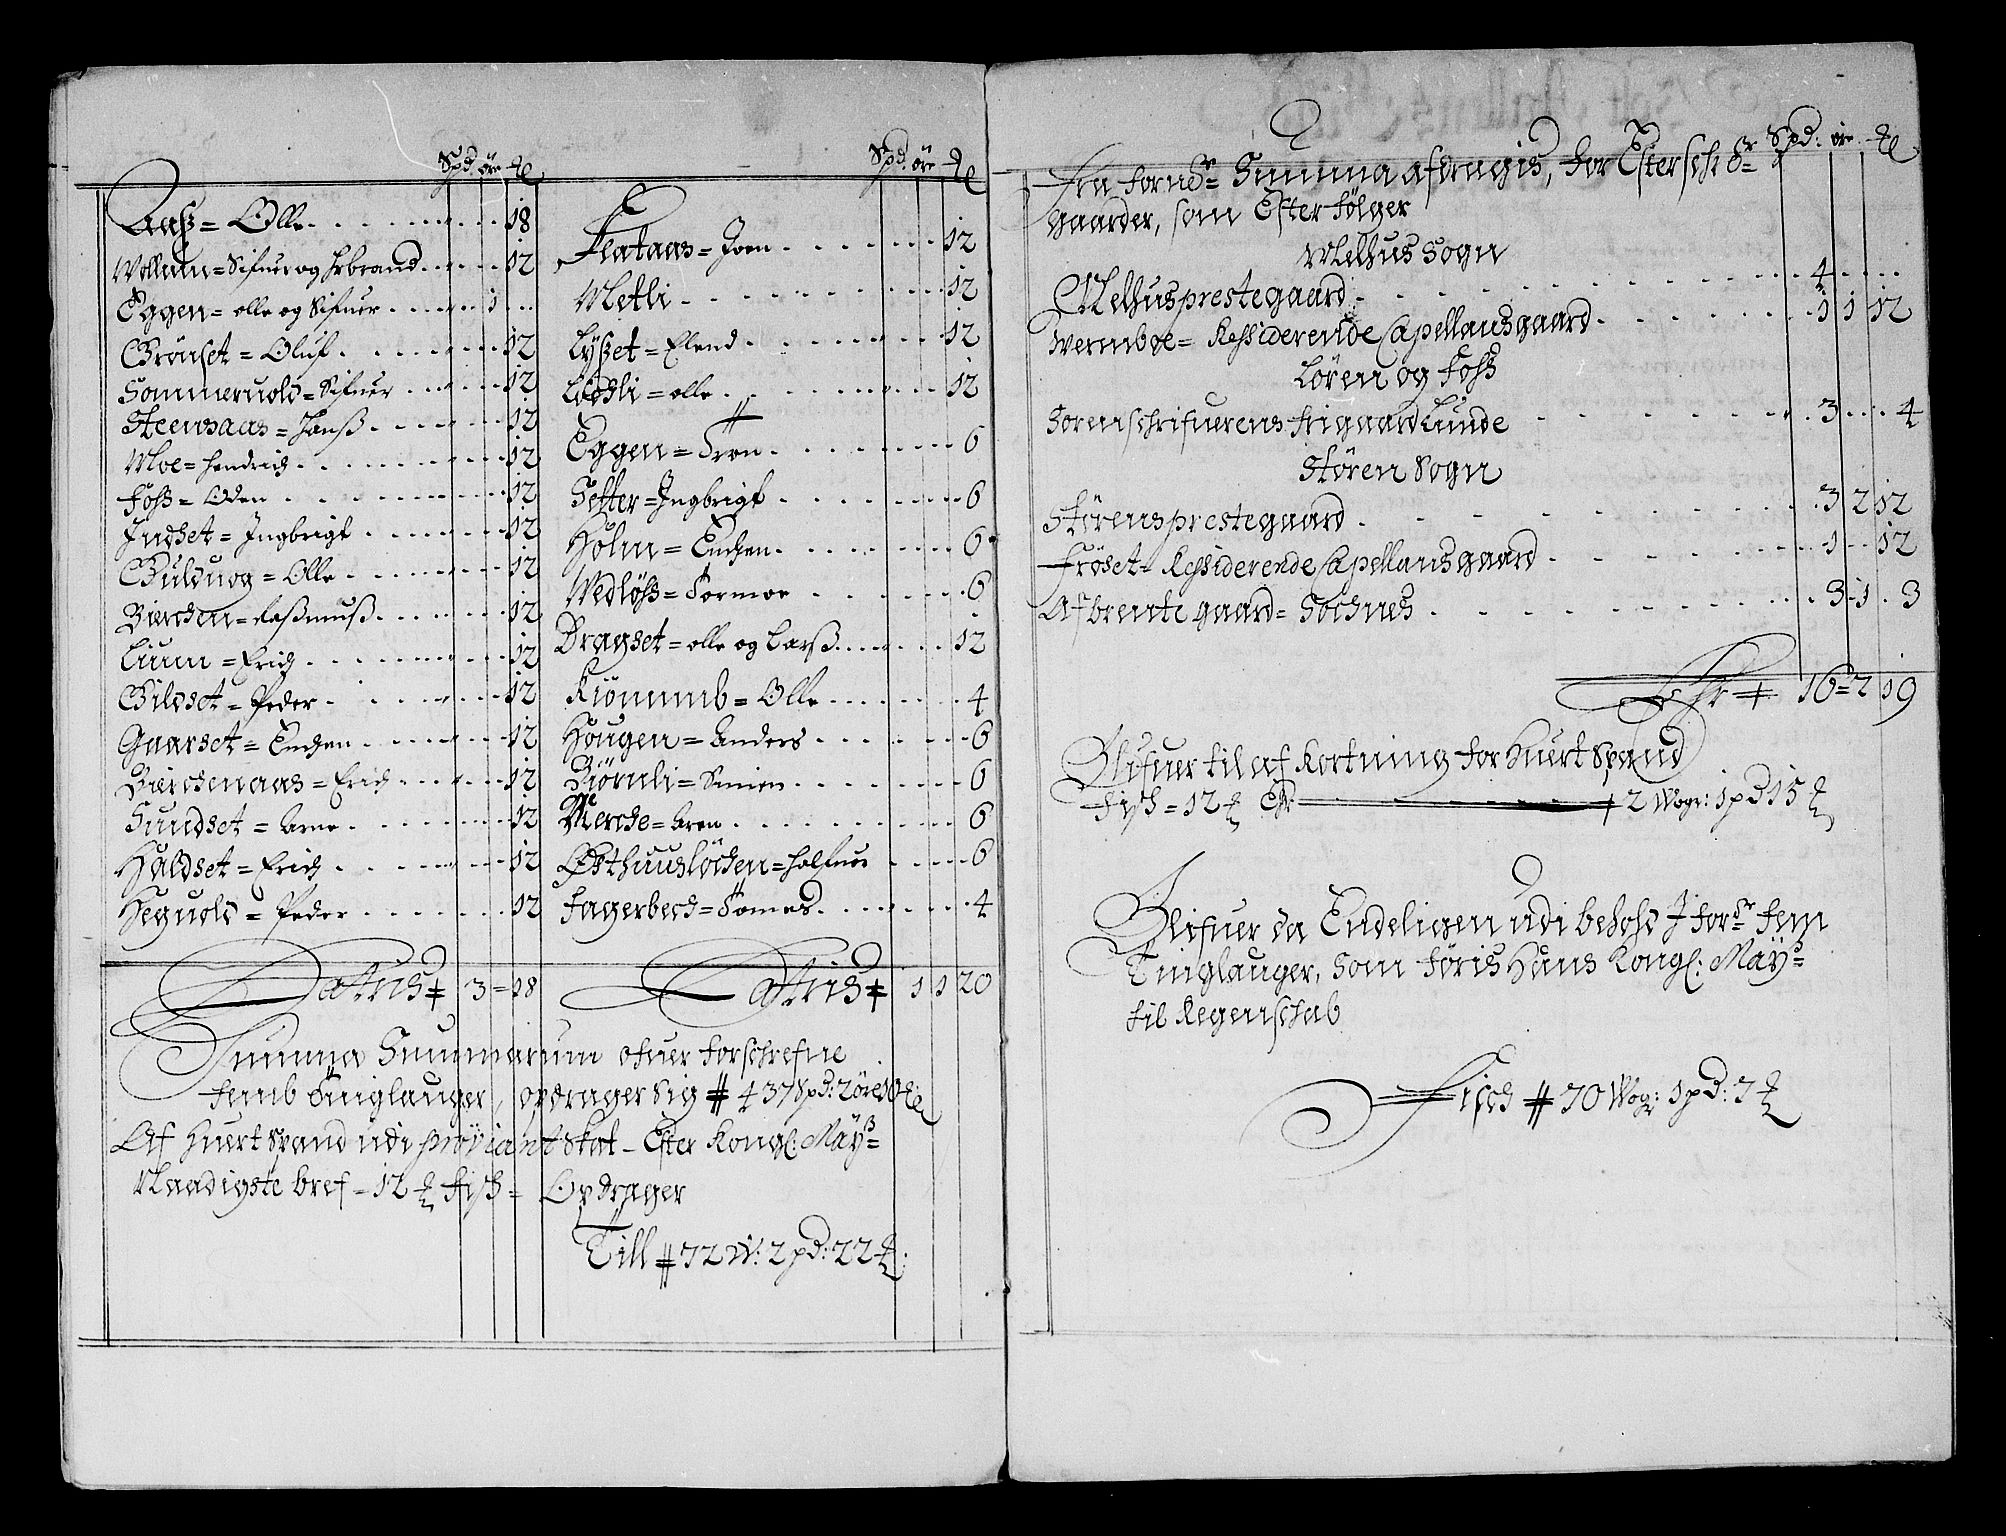 Spd: öre
Aass = Olle 18
Wollum = Sifuer og Hrbrand 12
Eggen = olle og Sifuer 1
Grönset = Oluf 12
Sommeruold = Sifuer 12
Steensaas = Hanss 12
Moe = Hendrich 12
Foss = Oden 12
Indset = Ingbrigt 12
Bulduog = Olle 12
Bierchen = Rassmuss 12
Lium = Erich 12
Bildset = Peder 12
Gaarset = Enchen 12
Bierchenaas = Erich 12
Sundset = Arne 12
Haldset = Erich 12
Heguold = Peder 12
Latris 3 = 18
Spd: öre
Flataas = Joen 12
Metli 12
Lysset = Elend 12
Lochli = olle 12
Eggen = Tron 6
Setter = Ingbrigt 6
Holm = Enchen 6
Wedlöss = Tormoe 6
Dragset = olle og Larss 12
Kiönnimb = Olle 4
Hougen = Anders 6
Biörnli = Simen 6
Merche = Aren 6
Östhuuslöchen = Halfuor 6
Fagerbech = Tomes 4
Latris 1 1 20
Summa Summarum ofuer forschrefne
femb Tinglauger, opdrager sig # 437 Spd: 2 öre 10
Af huert Spand udi proviant Skat - Efter Kongl: May:
Naadigste bref = 12 fisch = Opdrager
Till # 72 W: 2 pd: 22
Spd: öre
Fra fornd: Summa afdragis, for Efterschr:
gaarder, som Efter følger
Melhus Sogn
Melhus prestegaard 4
Wermboe = Ressiderende Capellansgaard 1 1 12
Lören og Foss
Sorenschrifuerens frigaard Lunde 3 4
Stören Sogn
Störens prestegaard 3 2 12
Fröset = Ressiderende Capellans gaard 1 12
Afbrente gaard = Sochnes 3 1 3
Ehr 16 = 2 19
Blifuer til af Kortning for huert Spand
fisch = 12 Er 2 Wogr: 1 pd 15
Blifuer da Endeligen udi behold I for: fem
Tinglauger, Som föris Hans Kongl: May:
til Regenschab
Fisch # 70 Wogr: 1 pd: 7